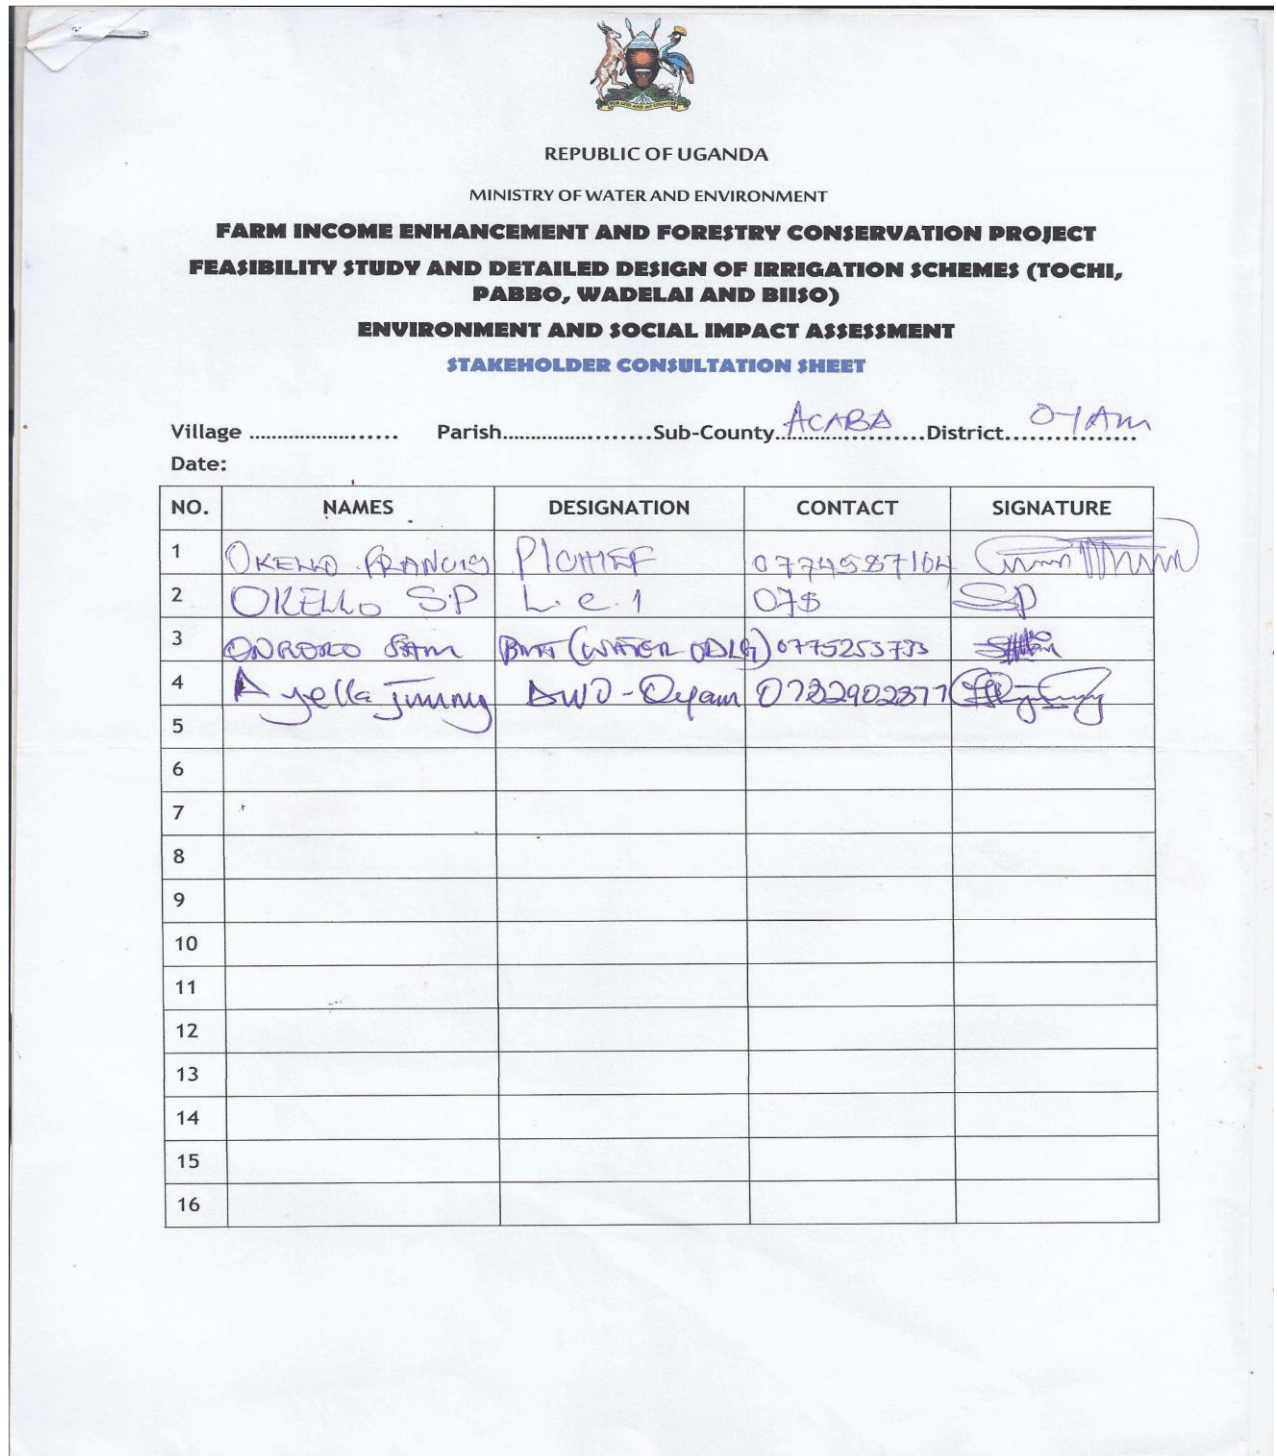 FOR GOD AND MY COUNTRY
REPUBLIC OF UGANDA
MINISTRY OF WATER AND ENVIRONMENT
FARM INCOME ENHANCEMENT AND FORESTRY CONSERVATION PROJECT
FEASIBILITY STUDY AND DETAILED DESIGN OF IRRIGATION SCHEMES (TOCHI,
PABBO, WADELAI AND BIISO)
ENVIRONMENT AND SOCIAL IMPACT ASSESSMENT
STAKEHOLDER CONSULTATION SHEET
Village ........................ Parish........................Sub-County ACABA District OYAM
Date:
NO. NAMES DESIGNATION CONTACT SIGNATURE
1 OKELLO FRANCIS P/CHIEF 0774587104
2 OKELLO S.P L.C.1 07$ SP
3 SAM (WATER ODLG) 0775253733
4 Ayella Jimmy DWO-Oyam 0782902877
5
6
7
8
9
10
11
12
13
14
15
16